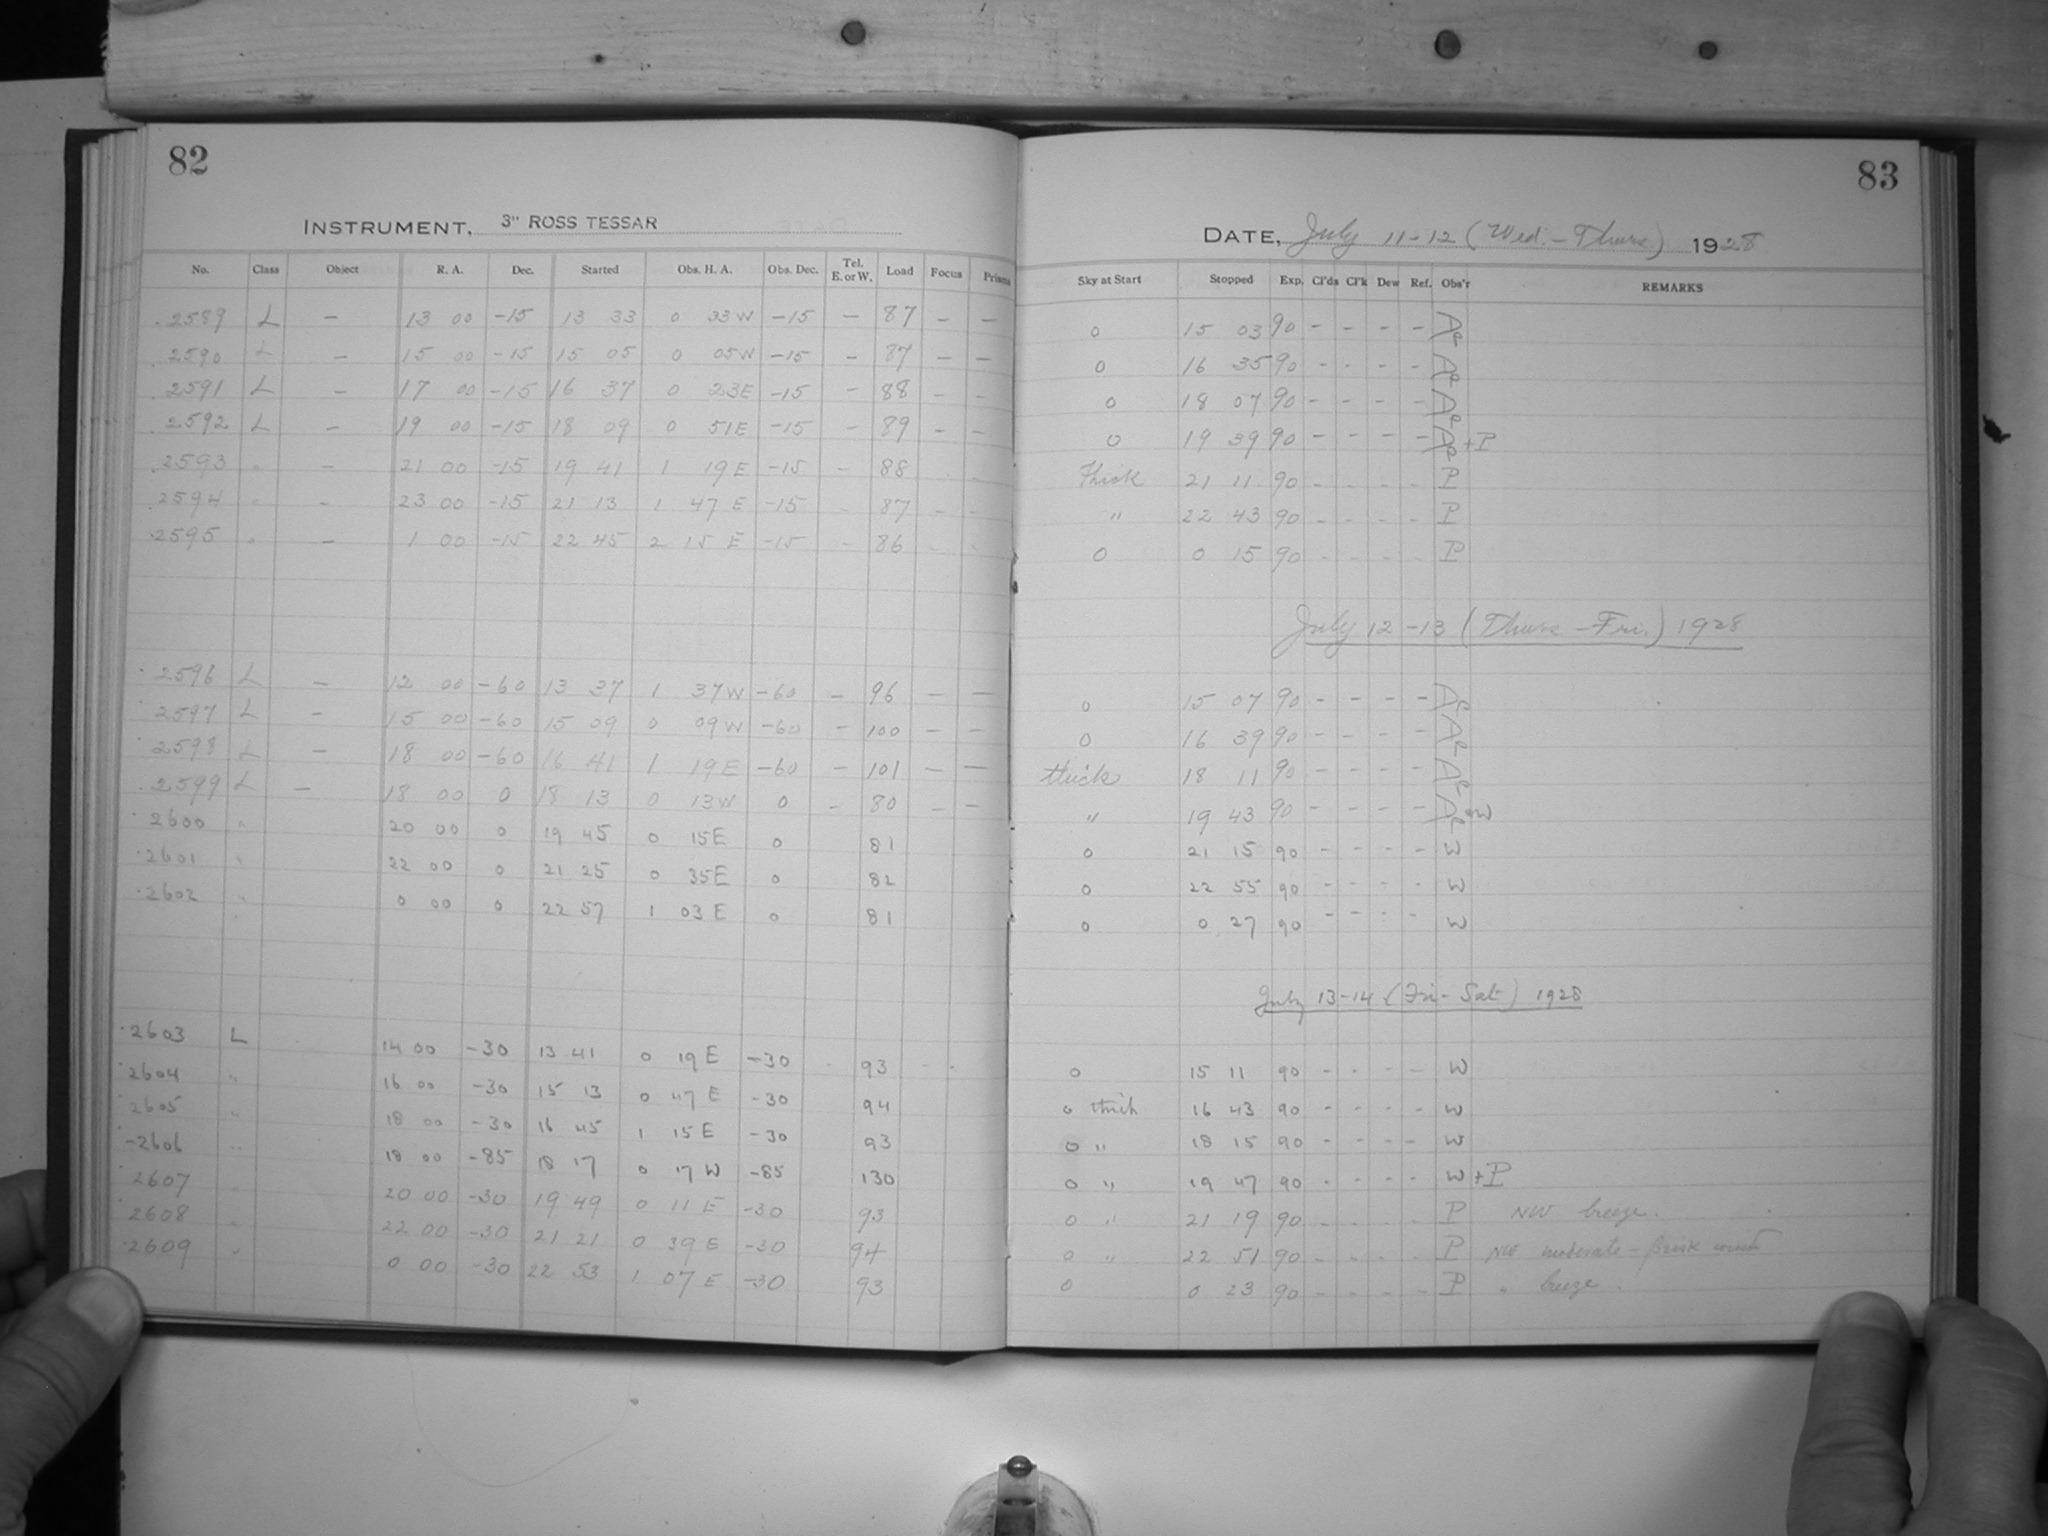 82
INSTRUMENT, 3" ROSS TESSAR
No. Class Object R. A. Dec. Started Obs. H. A. Obs. Dec. Tel. E. or W. Load Focus Prisms
2589 L — 13 00 -15 13 33 0 33W -15 — 87 — —
2590 L — 15 00 -15 15 05 0 05W -15 — 87 — —
2591 L — 17 00 -15 16 37 0 23E -15 — 88 — —
2592 L — 19 00 -15 18 09 0 51E -15 — 89 — —
2593 " — 21 00 -15 19 41 1 19E -15 - 88 - -
2594 " - 23 00 -15 21 13 1 47 E -15 - 87 - -
2595 " — 1 00 -15 22 45 2 15 E -15 - 86 - -
2596 L — 12 00 -60 13 37 1 37W -60 - 96 — —
2597 L — 15 00 -60 15 09 0 09W -60 - 100 — —
2598 L — 18 00 -60 16 41 1 19E -60 - 101 — —
2599 L — 18 00 0 18 13 0 13W 0 - 80 — —
2600 " 20 00 0 19 45 0 15E 0 81
2601 " 22 00 0 21 25 0 35E 0 82
2602 " 0 00 0 22 57 1 03 E 0 81
2603 L 14 00 -30 13 41 0 19 E -30 - 93 - -
2604 " 16 00 -30 15 13 0 47 E -30 94
2605 " 18 00 -30 16 45 1 15 E -30 93
2606 " 18 00 -85 18 17 0 17 W -85 130
2607 " 20 00 -30 19 49 0 11 E -30 93
2608 " 22 00 -30 21 21 0 39 E -30 94
2609 " 0 00 -30 22 53 1 07 E -30 93
83
DATE, July 11-12 (Wed.-Thurs) 1928
Sky at Start Stopped Exp. Cl'ds Cl'k Dew Ref. Obs'r REMARKS
0 15 03 90 - - - -
0 16 35 90 - - - -
0 18 07 90 - - - -
0 19 39 90 - - - - + P
Thick 21 11 90 - - - - P
" 22 43 90 - - - - P
0 0 15 90 - - - - P
July 12-13 (Thurs-Fri.) 1928
0 15 07 90 - - - -
0 16 39 90 - - - -
thick 18 11 90 - - - -
" 19 43 90 - - - - W
0 21 15 90 - - - - W
0 22 55 90 - - - - W
0 0 27 90 - - - - W
July 13-14 (Fri-Sat) 1928
0 15 11 90 - - - - W
0 thick 16 43 90 - - - - W
0 " 18 15 90 - - - - W
0 " 19 47 90 - - - - W + P
0 " 21 19 90 - - - - P NW breeze.
0 " 22 51 90 - - - - P NW moderate - brisk
0 0 23 90 - - - - P " breeze.